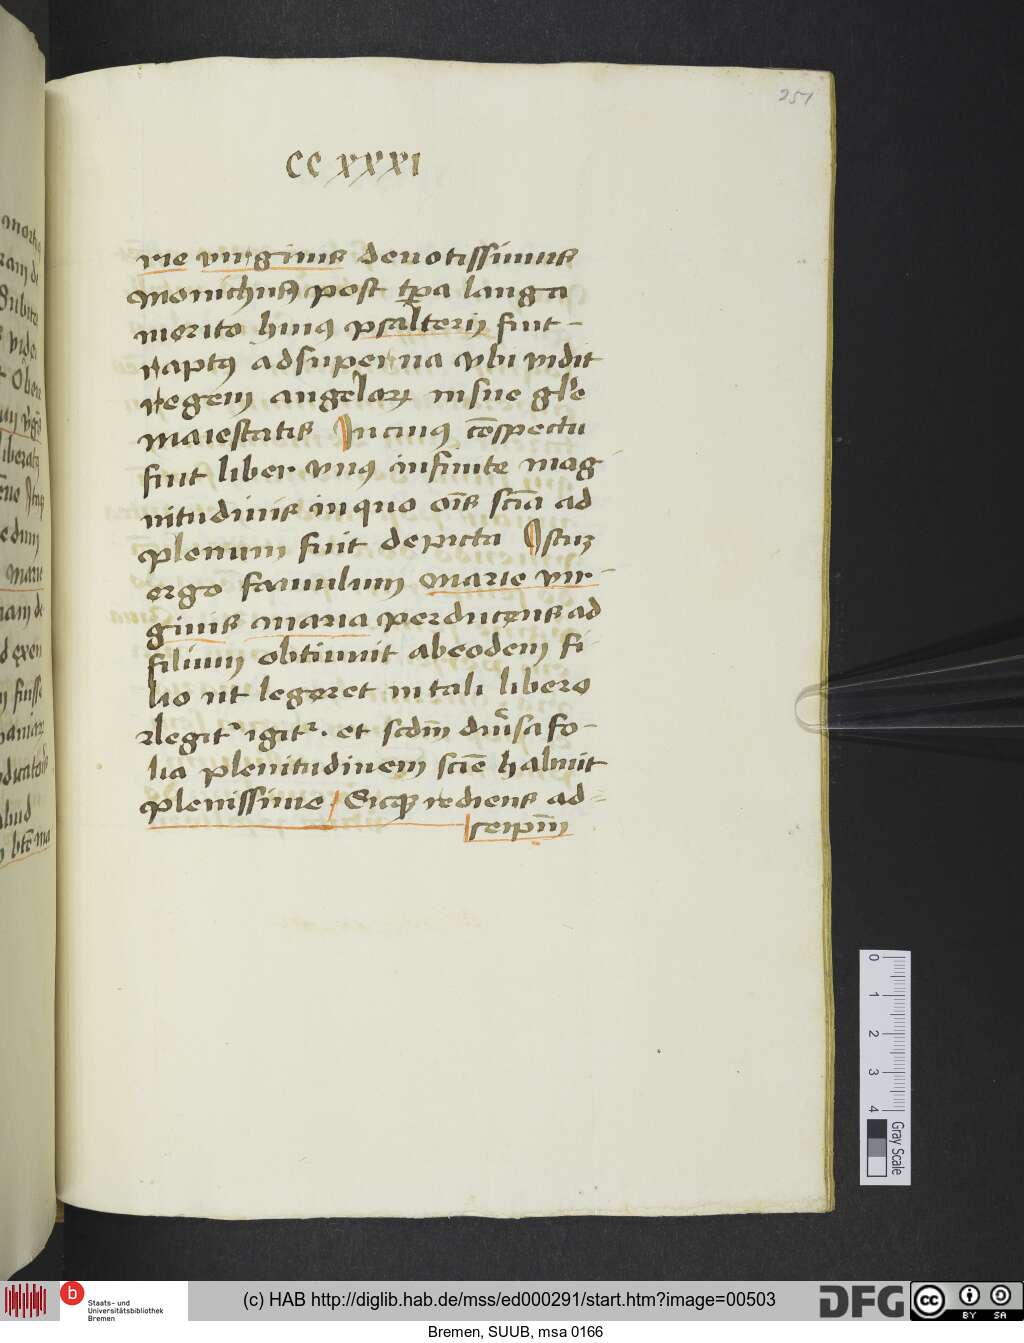 251
CC XXXI
rie virginis deuotissimus
monichus post tpa langa
merito huiꝰ psalterij fuit
raptꝰ ad superna vbi vidit
regem angeloꝝ in sue glie
maiestatis In cuiꝰ cōspectu
fuit liber vnꝰ infinite mag
nitudinis in quo oīs sciā ad
plenum fuit depicta Istuz
ergo famulum marie vir
ginis maria perducens ad
filium obtinuit ab eodem fi
lio ut legeret in tali libero
legit igitr. et scdm diu͛sa fo-
lia plenitudinem sciē habuit
plenissime Sicqꝫ rediens ad
seipm̄
0 1 2 3 4
Gray Scale
b
Staats- und
Universitätsbibliothek
Bremen
(c) HAB http://diglib.hab.de/mss/ed000291/start.htm?image=00503
DFG
cc
BY SA
Bremen, SUUB, msa 0166